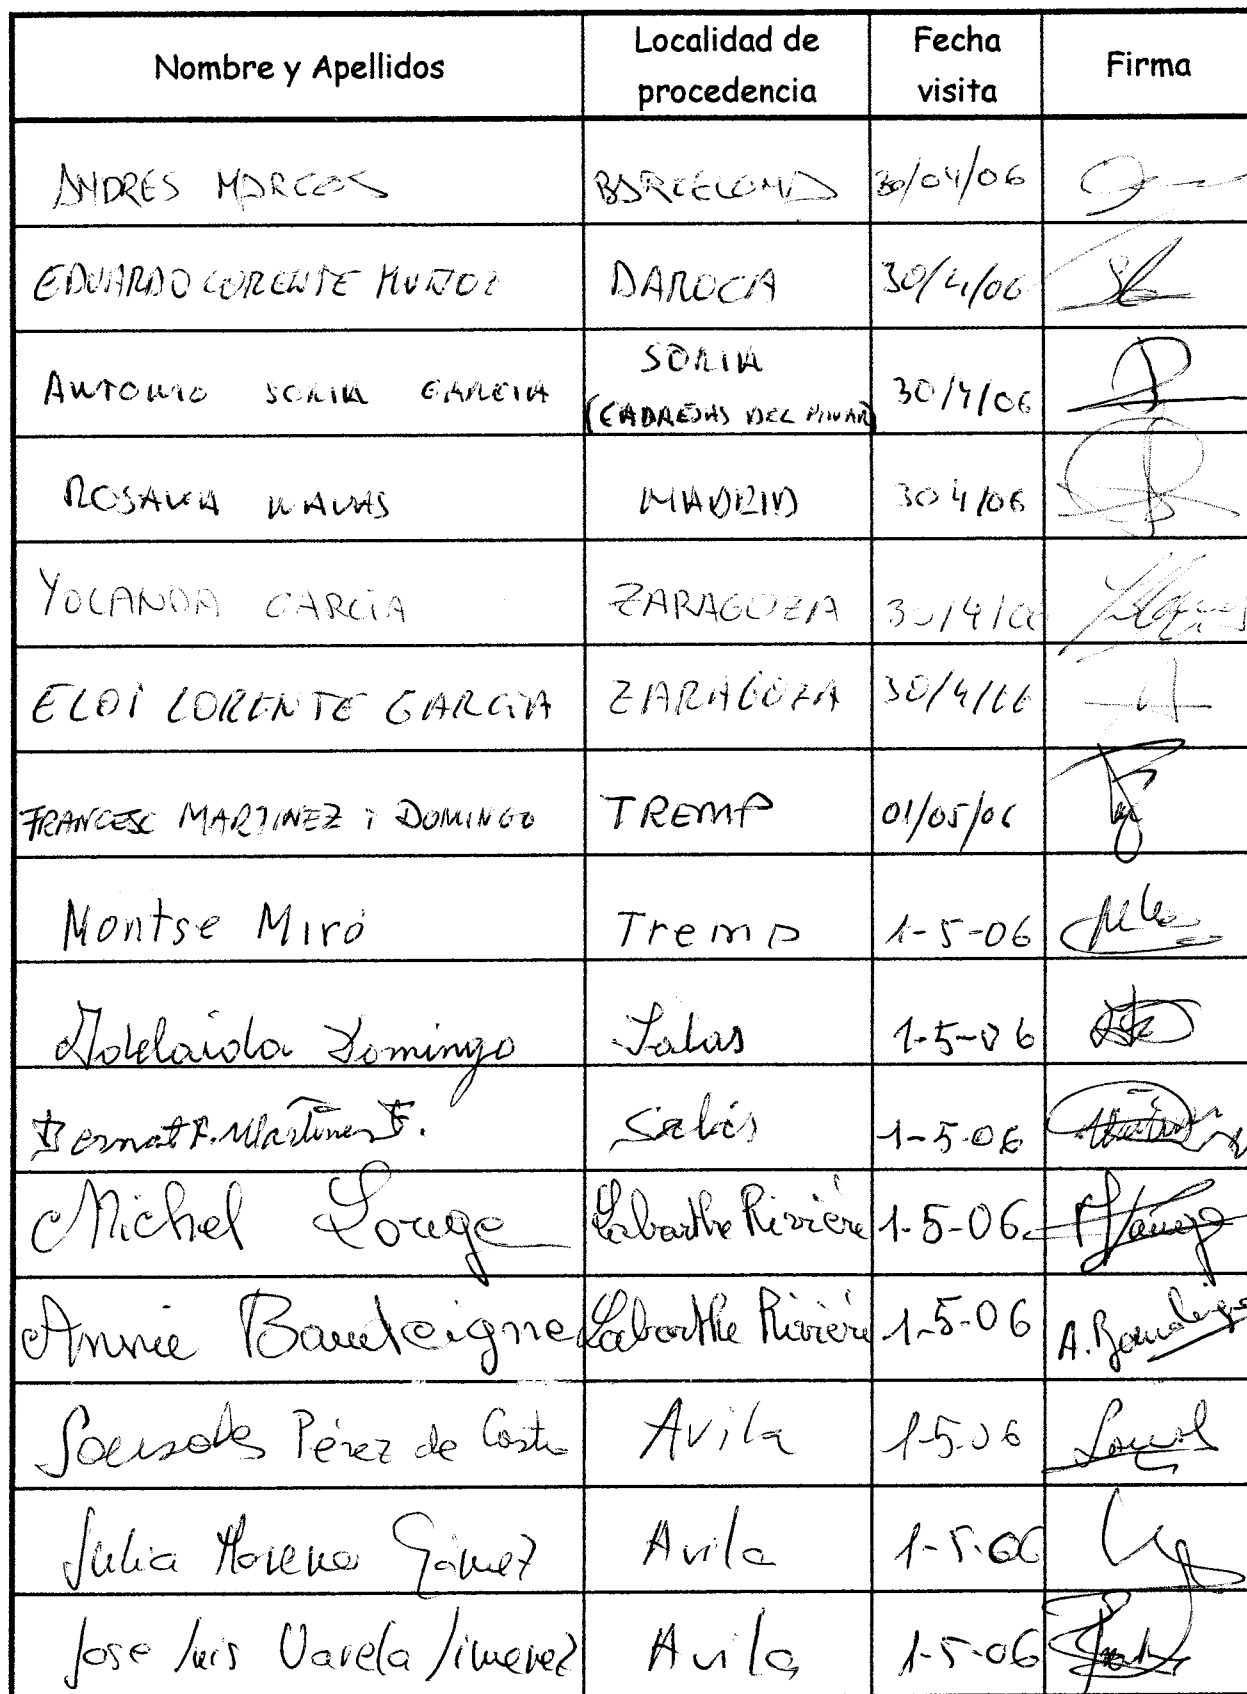 Nombre y Apellidos Localidad de procedencia Fecha visita Firma
ANDRES MARCOS BARCELONA 30/04/06
EDUARDO LORENTE MUÑOZ DAROCA 30/4/06
ANTONIO SORIA GARCIA SORIA (CABREJAS DEL PINAR) 30/4/06
ROSALIA NAVAS MADRID 30 4/06
YOLANDA GARCIA ZARAGOZA 30/4/06
ELOI LORENTE GARCIA ZARAGOZA 30/4/06
FRANCESC MARTINEZ i DOMINGO TREMP 01/05/06
Montse Miró Tremp 1-5-06
Adelaida Domingo Salas 1-5-06
Bernat F. Martínez F. Salás 1-5-06
Michel Louge Labarthe Rivière 1-5-06
Annie Baudeigne Labarthe Rivière 1-5-06 A. Baudeigne
Sonsoles Pérez de Castro Avila 1-5-06 Sonsol
Julia Moreno Gómez Avila 1-5-06
Jose Luis Varela Jimenez Avila 1-5-06